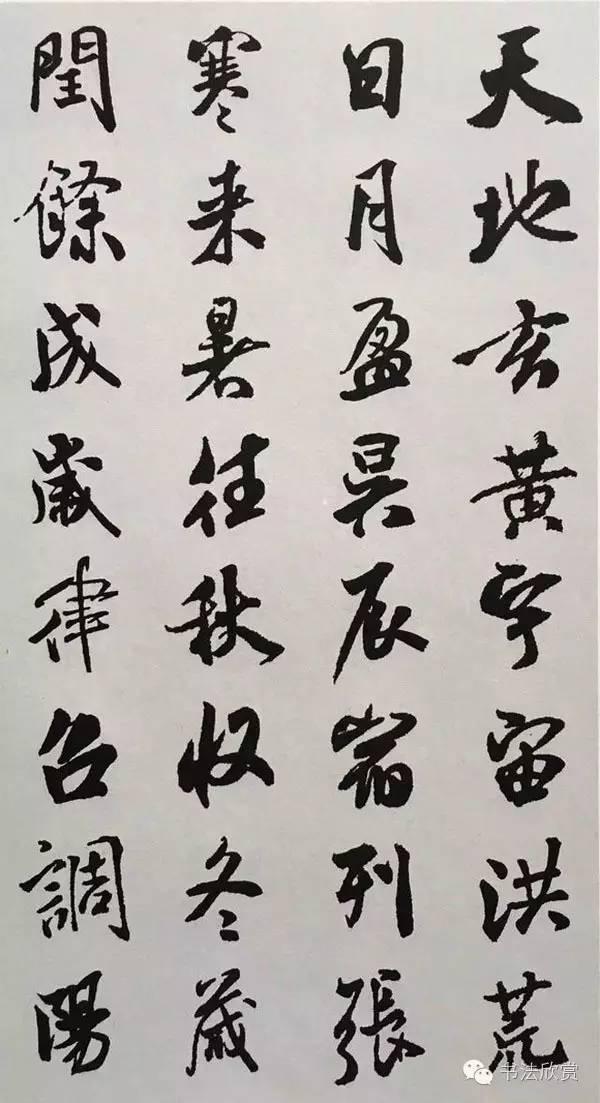 天地玄黃宇宙洪荒
日月盈昃辰宿列張
寒来暑往秋收冬藏
閏餘成歲律召調陽
书法欣赏